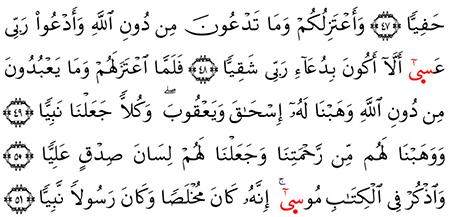 حَفِيًّا ﴿٤٧﴾ وَأَعْتَزِلُكُمْ وَمَا تَدْعُونَ مِن دُونِ اللَّهِ وَأَدْعُواْ رَبِّى
عَسَىٰٓ أَلَّآ أَكُونَ بِدُعَآءِ رَبِّى شَقِيًّا ﴿٤٨﴾ فَلَمَّا اعْتَزَلَهُمْ وَمَا يَعْبُدُونَ
مِن دُونِ اللَّهِ وَهَبْنَا لَهُۥٓ إِسْحَـٰقَ وَيَعْقُوبَ ۖ وَكُلاًّ جَعَلْنَا نَبِيًّا ﴿٤٩﴾
وَوَهَبْنَا لَهُم مِّن رَّحْمَتِنَا وَجَعَلْنَا لَهُمْ لِسَانَ صِدْقٍ عَلِيًّا ﴿٥٠﴾
وَاذْكُرْ فِى الْكِتَـٰبِ مُوسَىٰٓ ۚ إِنَّهُۥ كَانَ مُخْلَصًا وَكَانَ رَسُولاً نَّبِيًّا ﴿٥١﴾